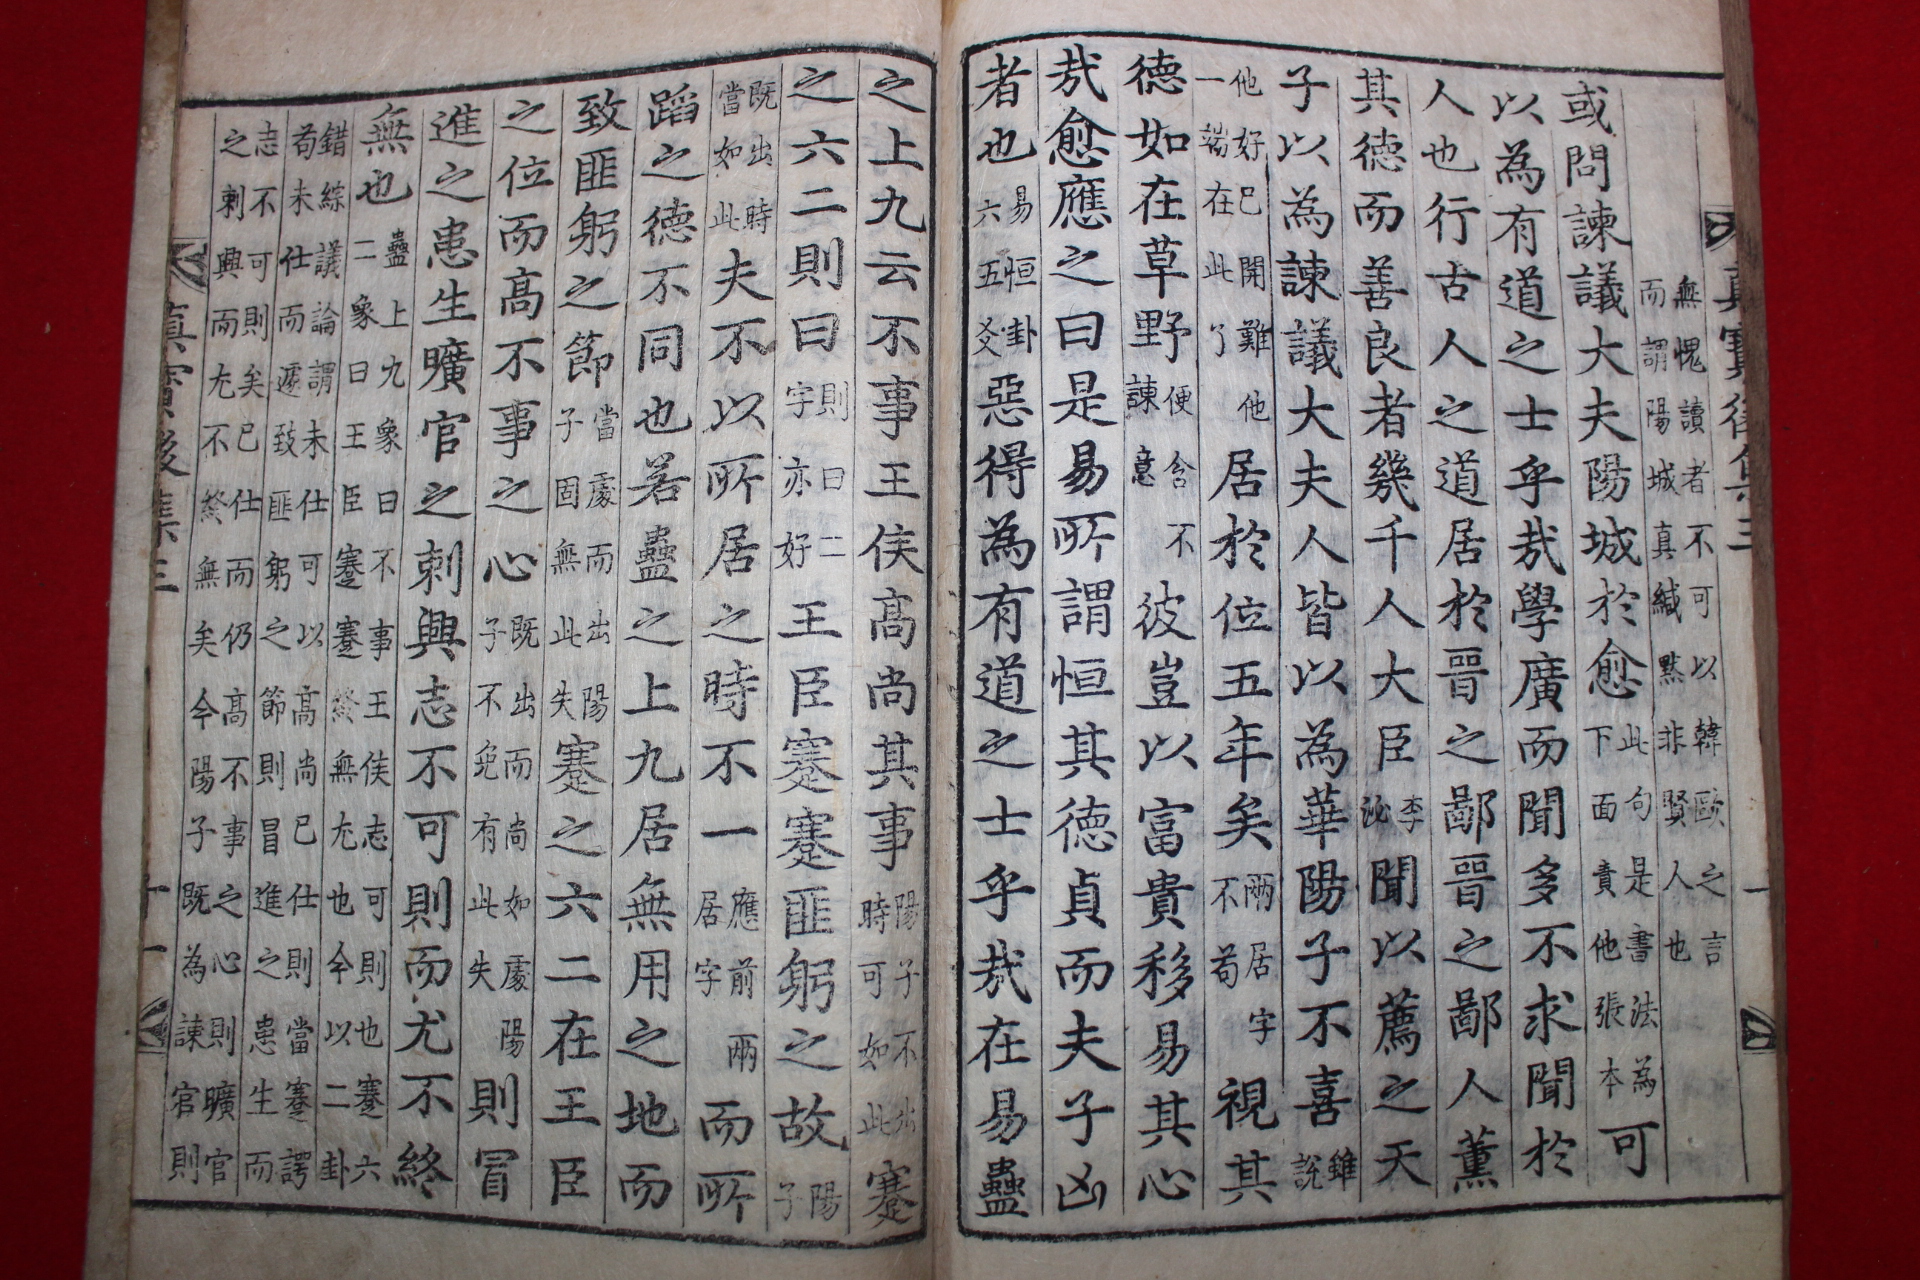 真寶後集三
無愧讀者不可以韓歐之言
而謂陽城真緘黙非賢人也
或問諫議大夫陽城於愈此句是書法為下面責他張本可
以為有道之士乎哉學廣而聞多不求聞於
人也行古人之道居於晉之鄙晉之鄙人薰
其德而善良者幾千人大臣李泌聞以薦之天
子以為諫議大夫人皆以為華陽子不喜雖說
他好已開難他一端在此了居於位五年矣兩居字不苟視其
德如在草野便含不諫意彼豈以富貴移易其心
哉愈應之曰是易所謂恒其德貞而夫子凶
者也易恒卦六五爻惡得為有道之士乎哉在易蠱
之上九云不事王侯高尚其事陽子不出時可如此蹇
之六二則曰則曰二字亦好王臣蹇蹇匪躬之故陽子
既出時當如此夫不以所居之時不一應前兩居字而所
蹈之德不同也若蠱之上九居無用之地而
致匪躬之節當處而出陽子固無此失蹇之六二在王臣
之位而高不事之心既出而尚如處陽子不免有此失則冒
進之患生曠官之刺興志不可則而尤不終
無也蠱上九象曰不事王侯志可則也蹇六
二象曰王臣蹇蹇終無尤也今以二卦
錯綜議論謂未仕可以高尚已仕則當蹇諤
苟未仕而遽致匪躬之節則冒進之患生而
志不可則矣已仕而仍高不事之心則曠官
之刺興而尤不終無矣今陽子既為諫官則
真寶後集三 十一